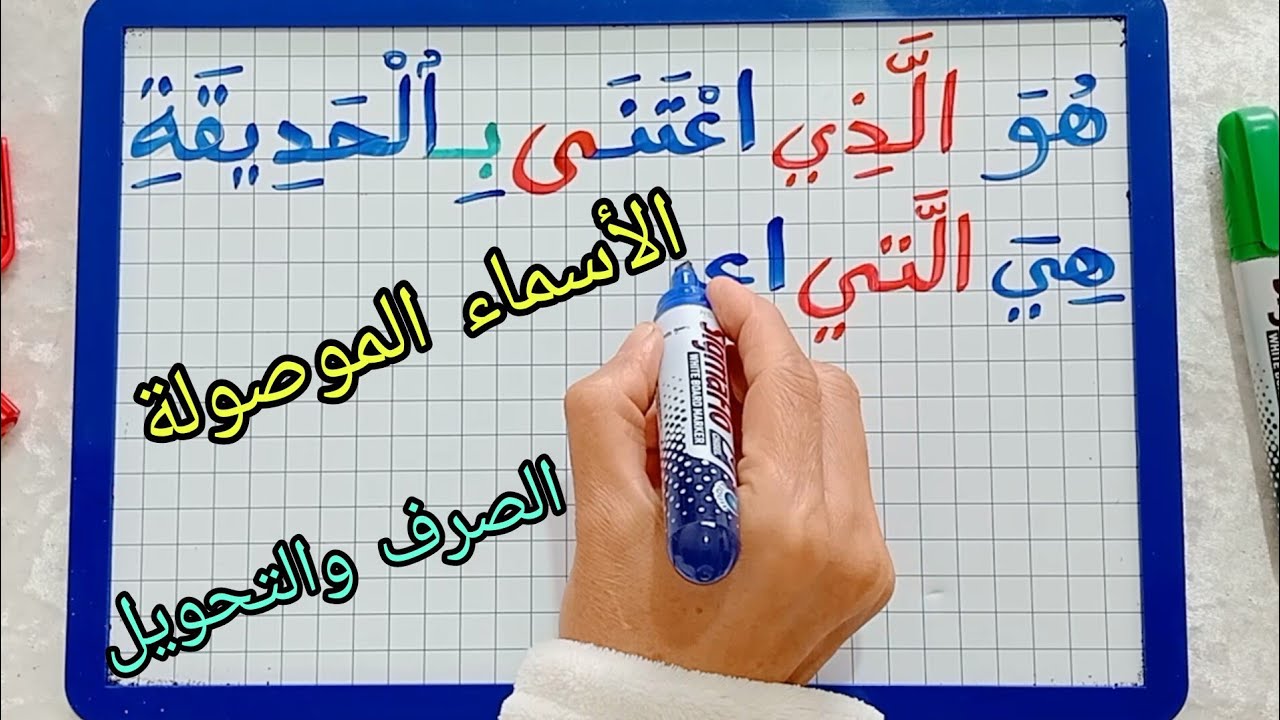 هُوَ الَّذِي اعْتَنَى بِٱلْحَدِيقَةِ
هِيَ الَّتِي اع
الأسماء الموصولة
الصرف والتحويل
WHITE BOARD MARKER